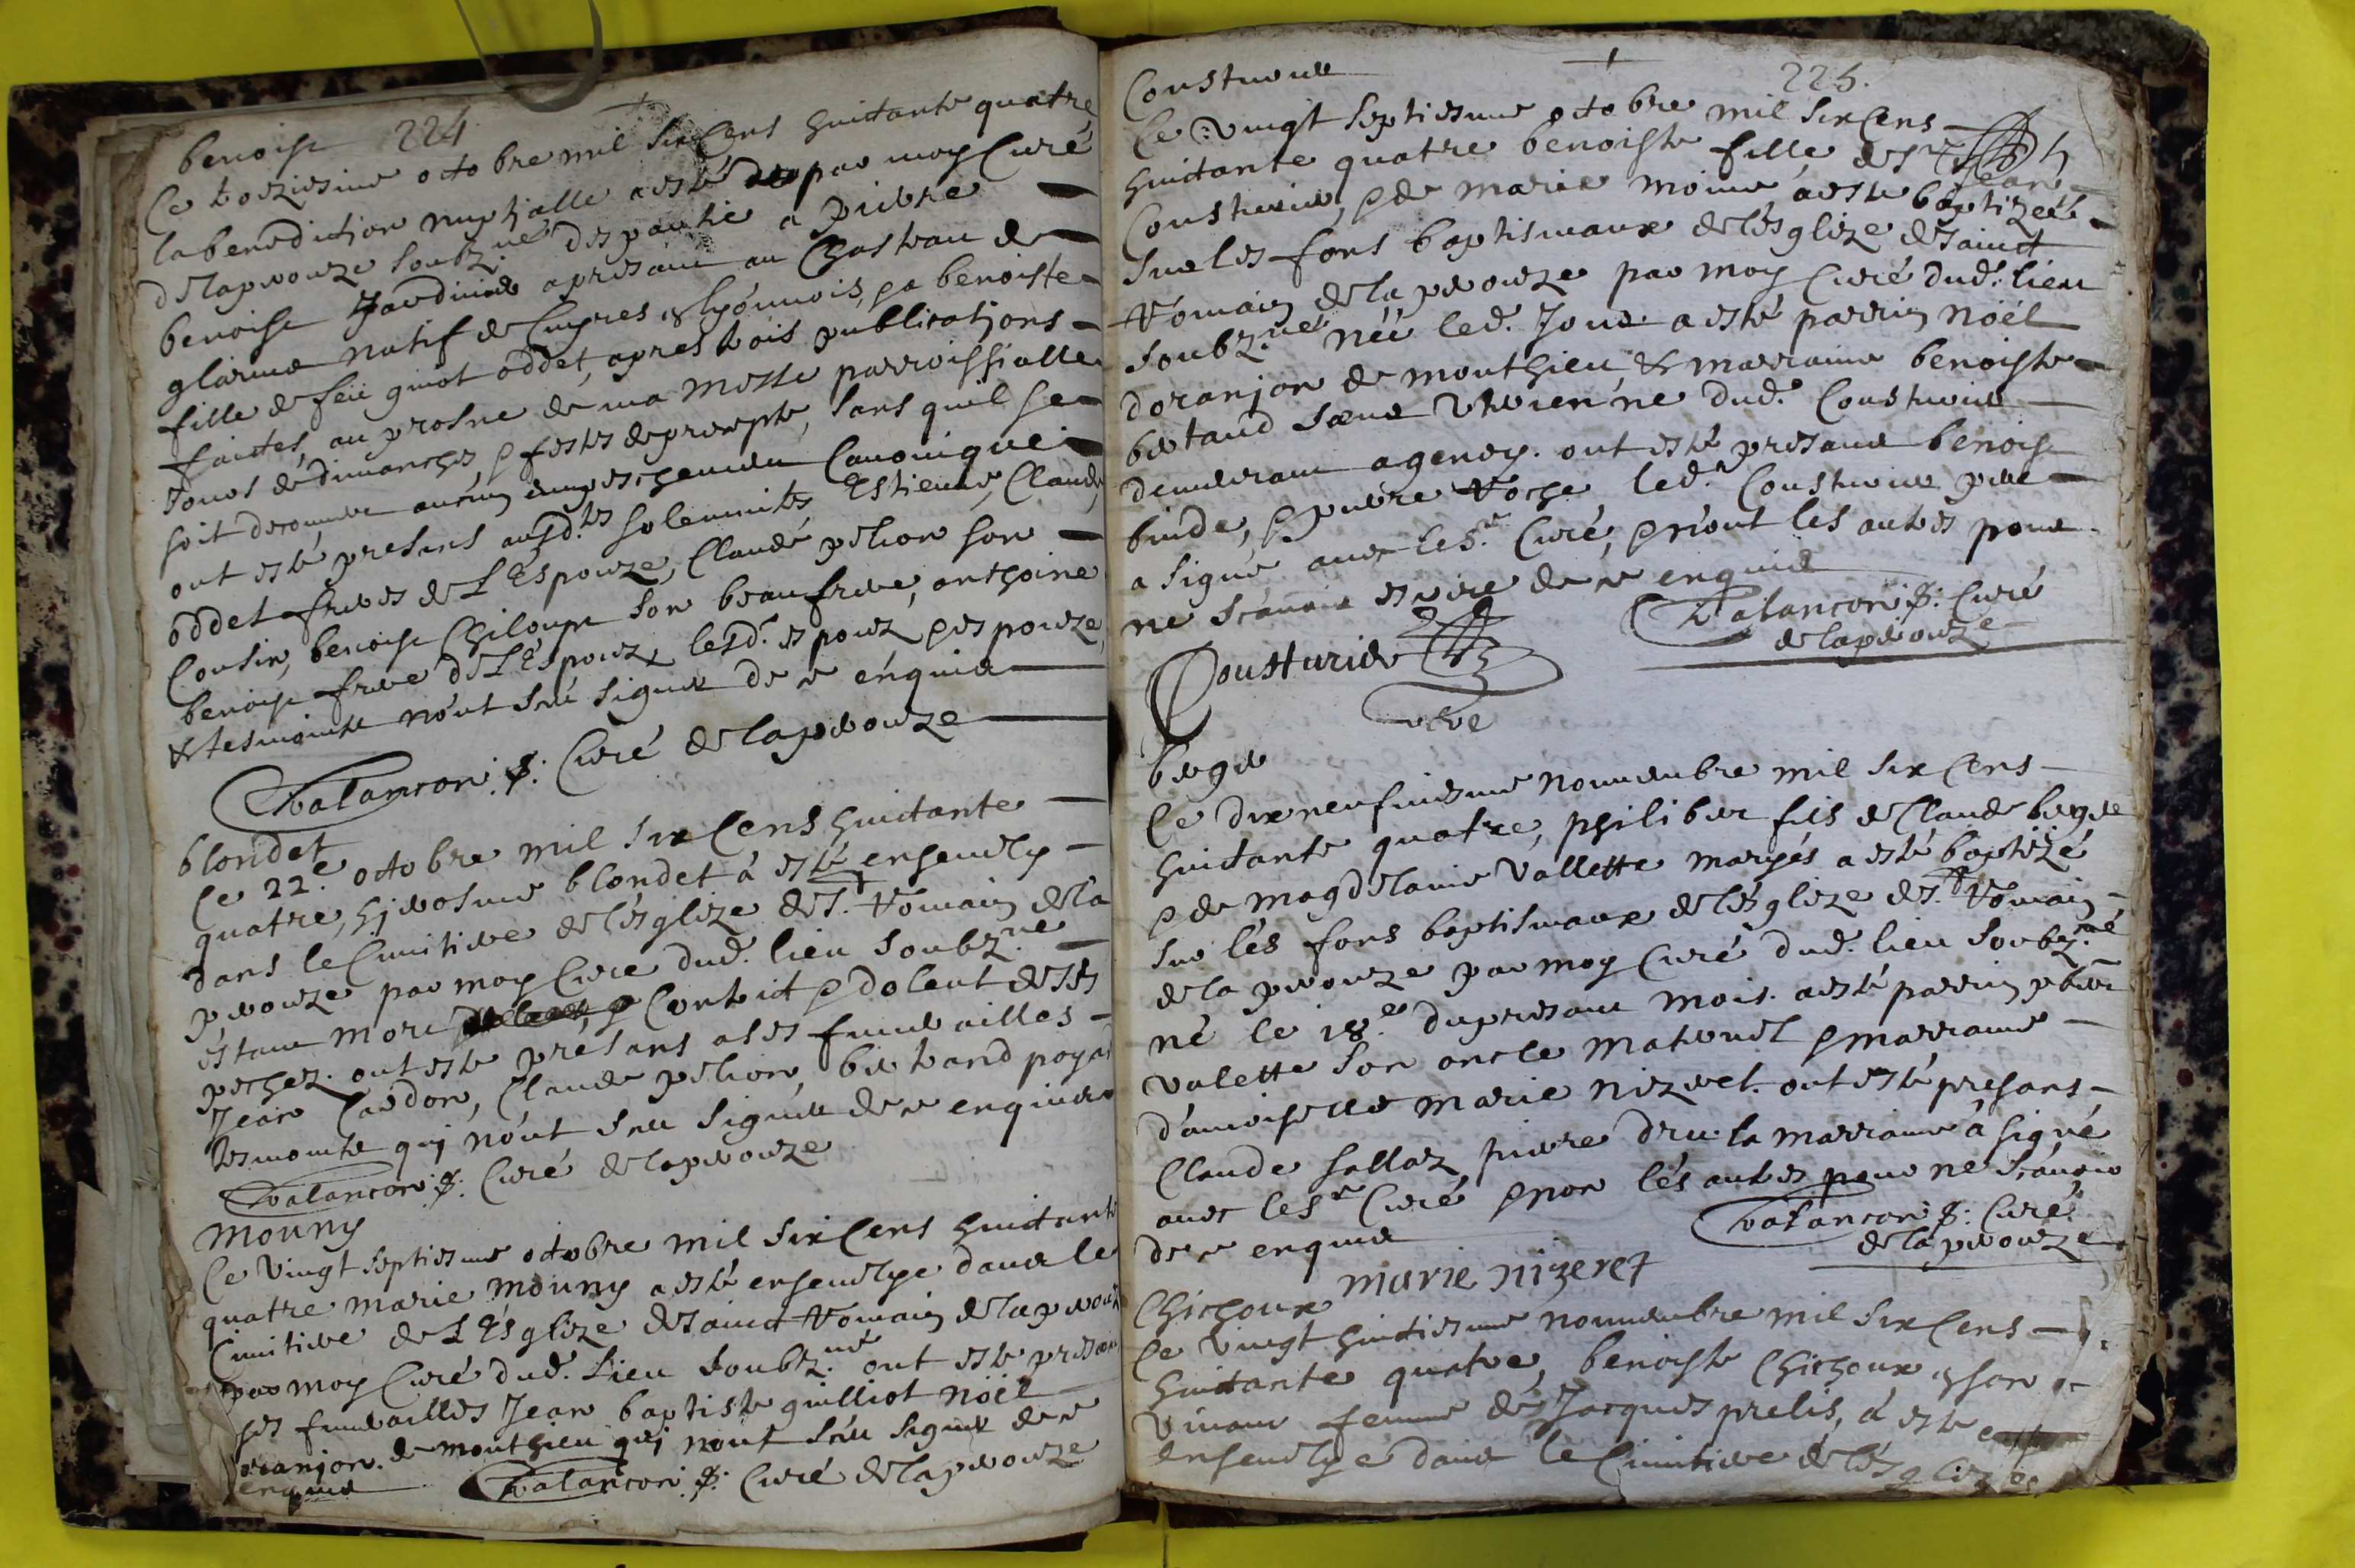 benoist 224
Ce troiziesme octobre mil six Cens huictante quatre
la benediction nuptialle a esté par moy Curé
de lapeirouze soubz.né despartie a pierre
benoist Jardinier apresant au Chasteau de
natif de en lyonnois, & a benoiste
fille de feu oddet, apres trois publications
faictes, au prosne de ma messe parroissialle
Jours de dimanches, & festes de precepte, sans quil se
soit descouvert aucun empeschement Canonique
ont esté presens ausd.tes solemnites Estienne, Claude
oddet freres de L'Espouze, Claude son
Cousin, benoist son beaufrere, anthoine
benoist frere de L'Espouz, lesd. espouz & espouze,
& tesmoints n'ont sceu signer de ce enquis
Tatancon p: Curé de lapeirouze
blondet
Ce 22.e octobre mil six Cens huictante
quatre, hierosme blondet à esté ensevely
dans le Cimitiere de lésglize de S.t Romain de la
peirouze par moy Cure dud. lieu soubz.né
éstant mort Contrict & dolent de ses
pechez. ont este présans a ses funerailles
Jean Cardon, Claude bertrand
tesmoints qui n'ont sceu signer de ce enquis
Tatancon p: Curé de lapeirouze
mouny
Ce vingt septiesme octobre mil six Cens huictante
quatre marie mouny a esté ensevelye dans le
Cimitiere de L'Esglize de Sainct Romain de lapeirouze
par moy Curé dud. Lieu soubz.né ont este presans
ses funerailles Jean baptiste guilliot noël
oranjon. de monthieu qui n'ont sceu signer de ce
enquis Tatancon p: Curé de lapeirouze
Cousturier 225.
Ce vingt septiesme octobre mil six Cens
huictante quatre benoiste fille de Sr Jean
Cousturier, & de marie moine a este baptizeé
sur les fons baptismaux de lésglize de Sainct
Romain de la peirouze par moy Curé dud. lieu
soubz.né née led. Jour a esté parrin noël
doranjon de monthieu, & marraine benoiste
bertaud sœur dud. Cousturier
demeurant a geney. ont esté presans benoist
binde, & pierre Roche led. Cousturier pere
a signé avec le s.r Curé, & n'ont les autres pour
ne scavoir escrire de ce enquis
Tatancon p: Curé
de lapeirouze
Cousturier
pere
berger
Ce dixneufviesme Novembre mil six Cens
huictante quatre, philiber fils de Claude berger
& de magdelaine Vallette maryés a esté baptizé
sur lés fons baptismaux de lésglize de S.t Romain
de la peirouze par moy Curé dud. lieu soubz.né
né le 18.e du presant mois. a esté parrin
valette son oncle maternel & marraine
d'amoiselle marie nizeret. ont esté presans
Claude sallaz, pierre dru. la marraine à signé
avec le s.r Curé & non lés autres pour ne scavoir
de ce enquis Tatancon p: Curé
de lapeirouze
marie nizeret
Chichoux
Ce vingt huictiesme novembre mil six Cens
huictante quatre, benoiste Chichoux & son
vivant femme de Jacques prelis, à este
ensevelye dans le Cimitiere de lésglize